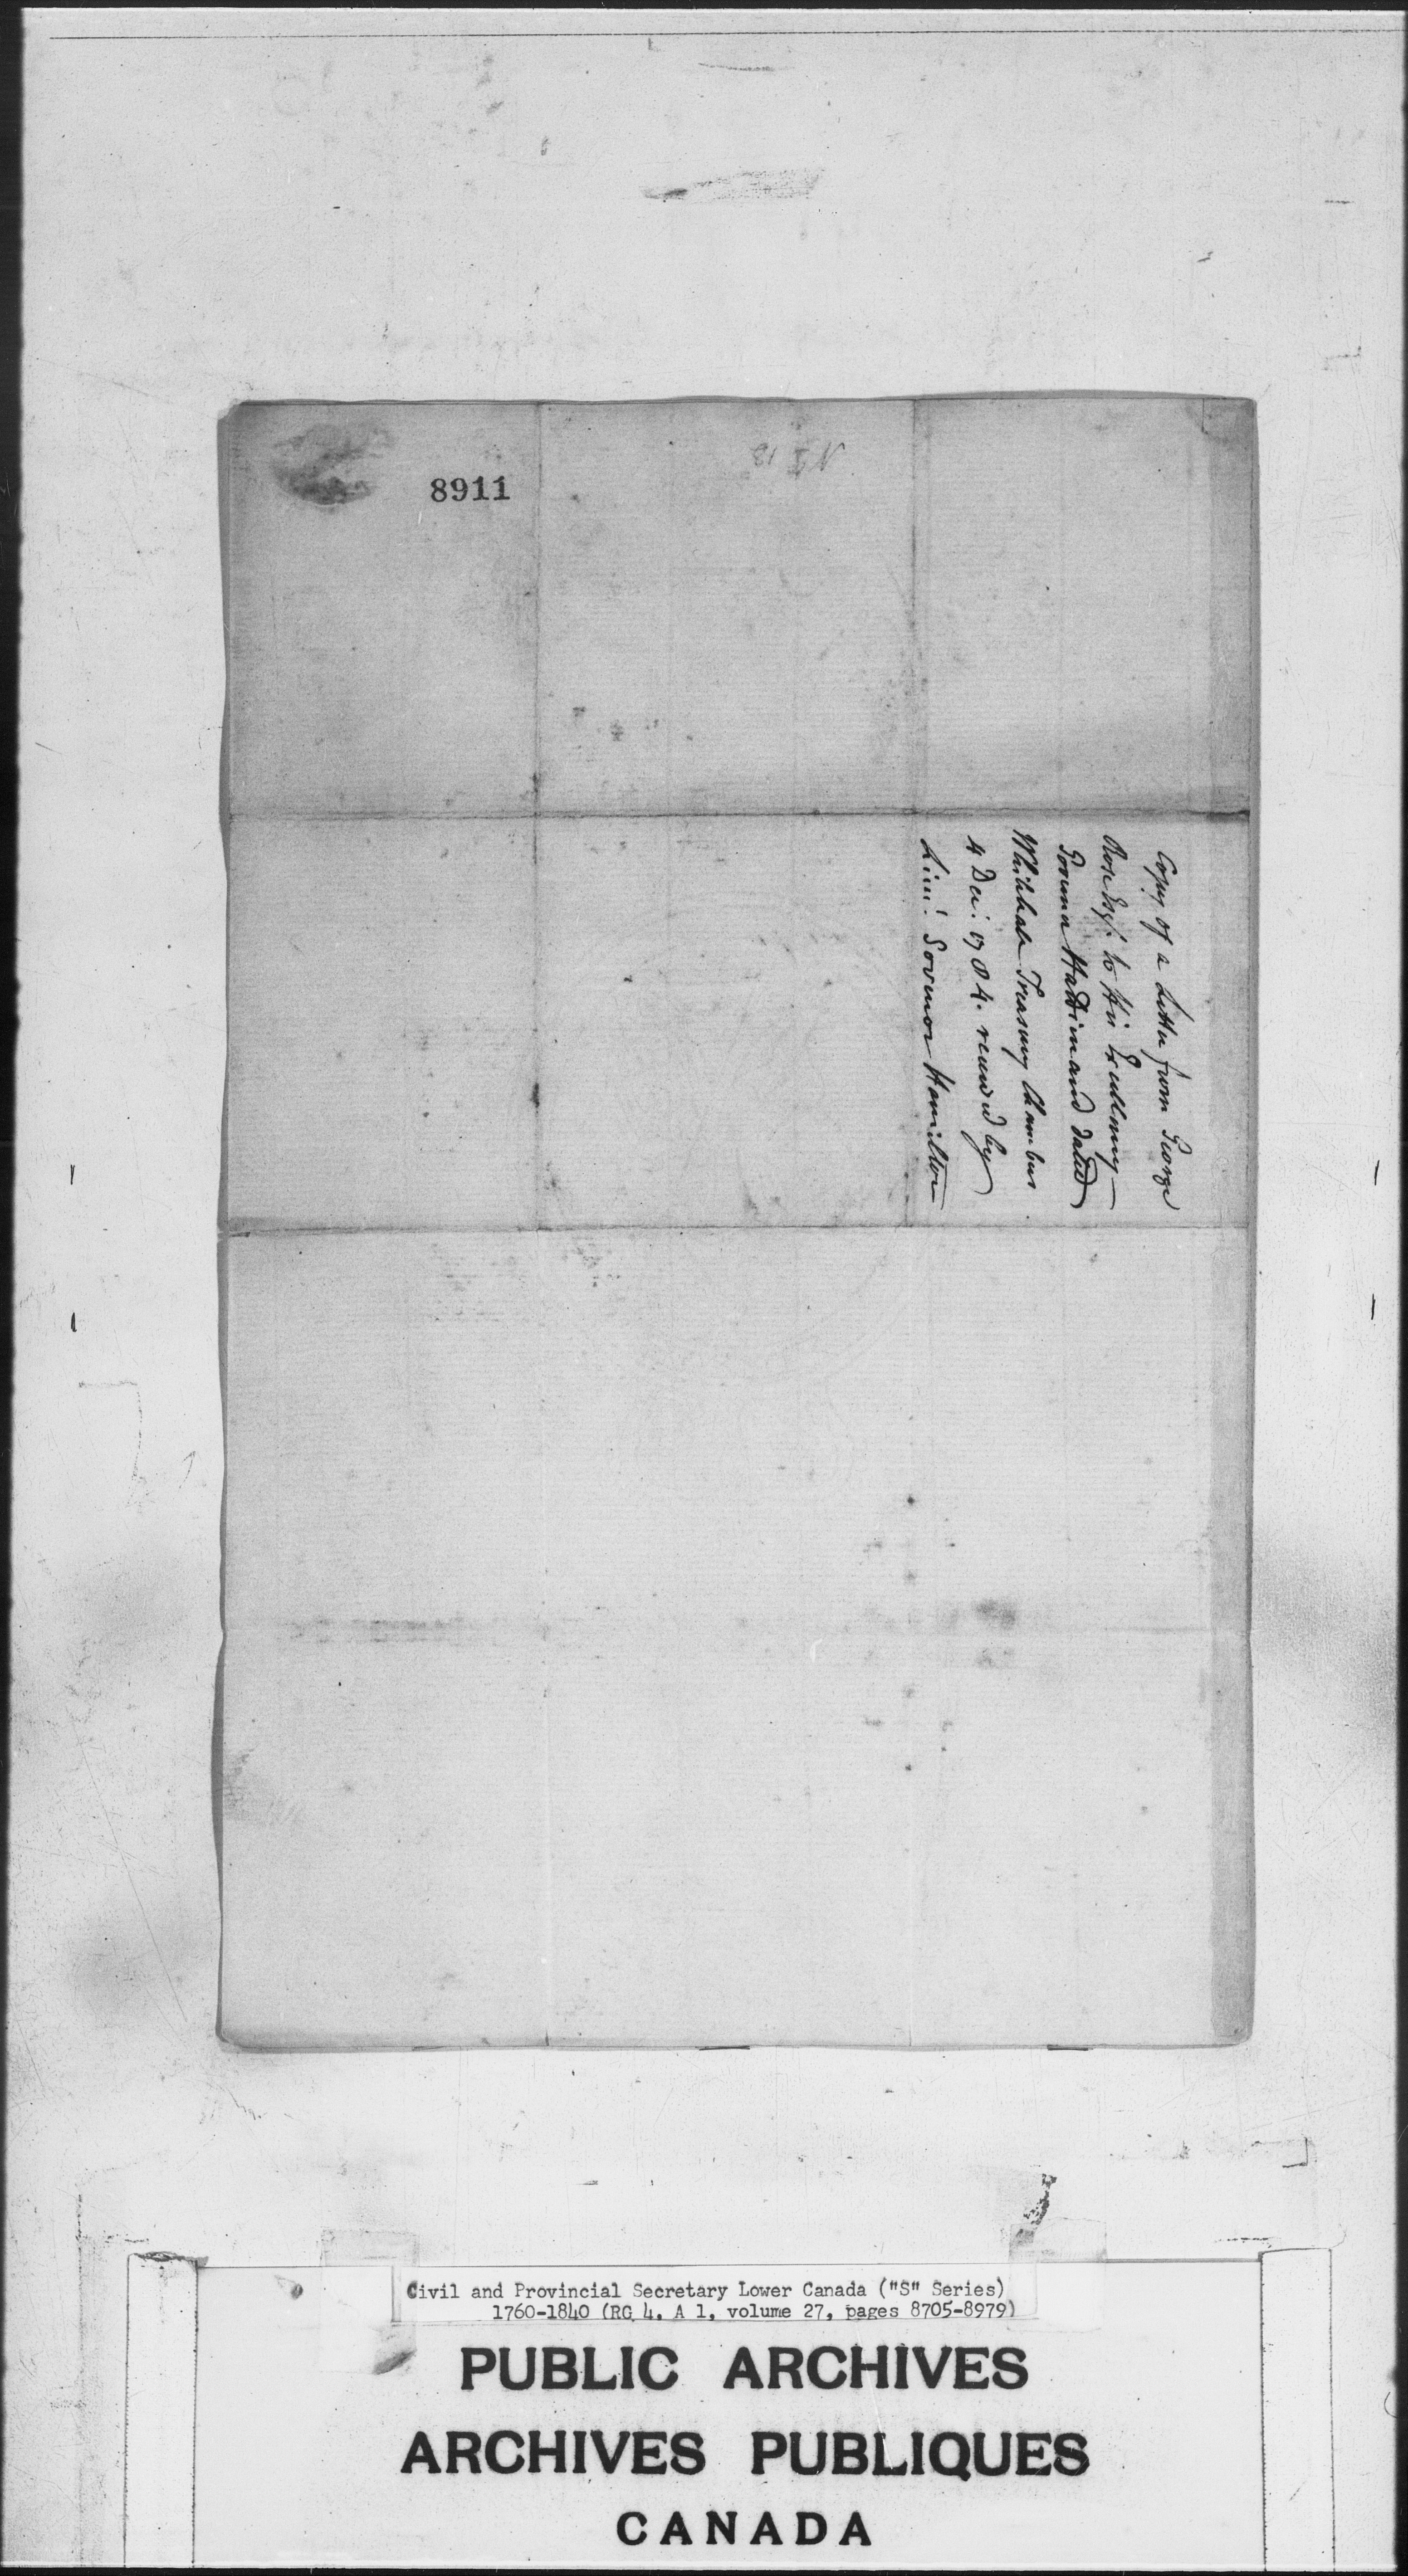 8911
Copy of a Letter from George
Rose Esqr. to His Excellency
Governor Haldimand dated
Whitehall Treasury Chambers
4 Dec: 1784. received by
Lieut: Governor Hamilton
Civil and Provincial Secretary Lower Canada ("S" Series)
1760-1840 (RG 4, A 1, volume 27, pages 8705-8979)
PUBLIC ARCHIVES
ARCHIVES PUBLIQUES
CANADA